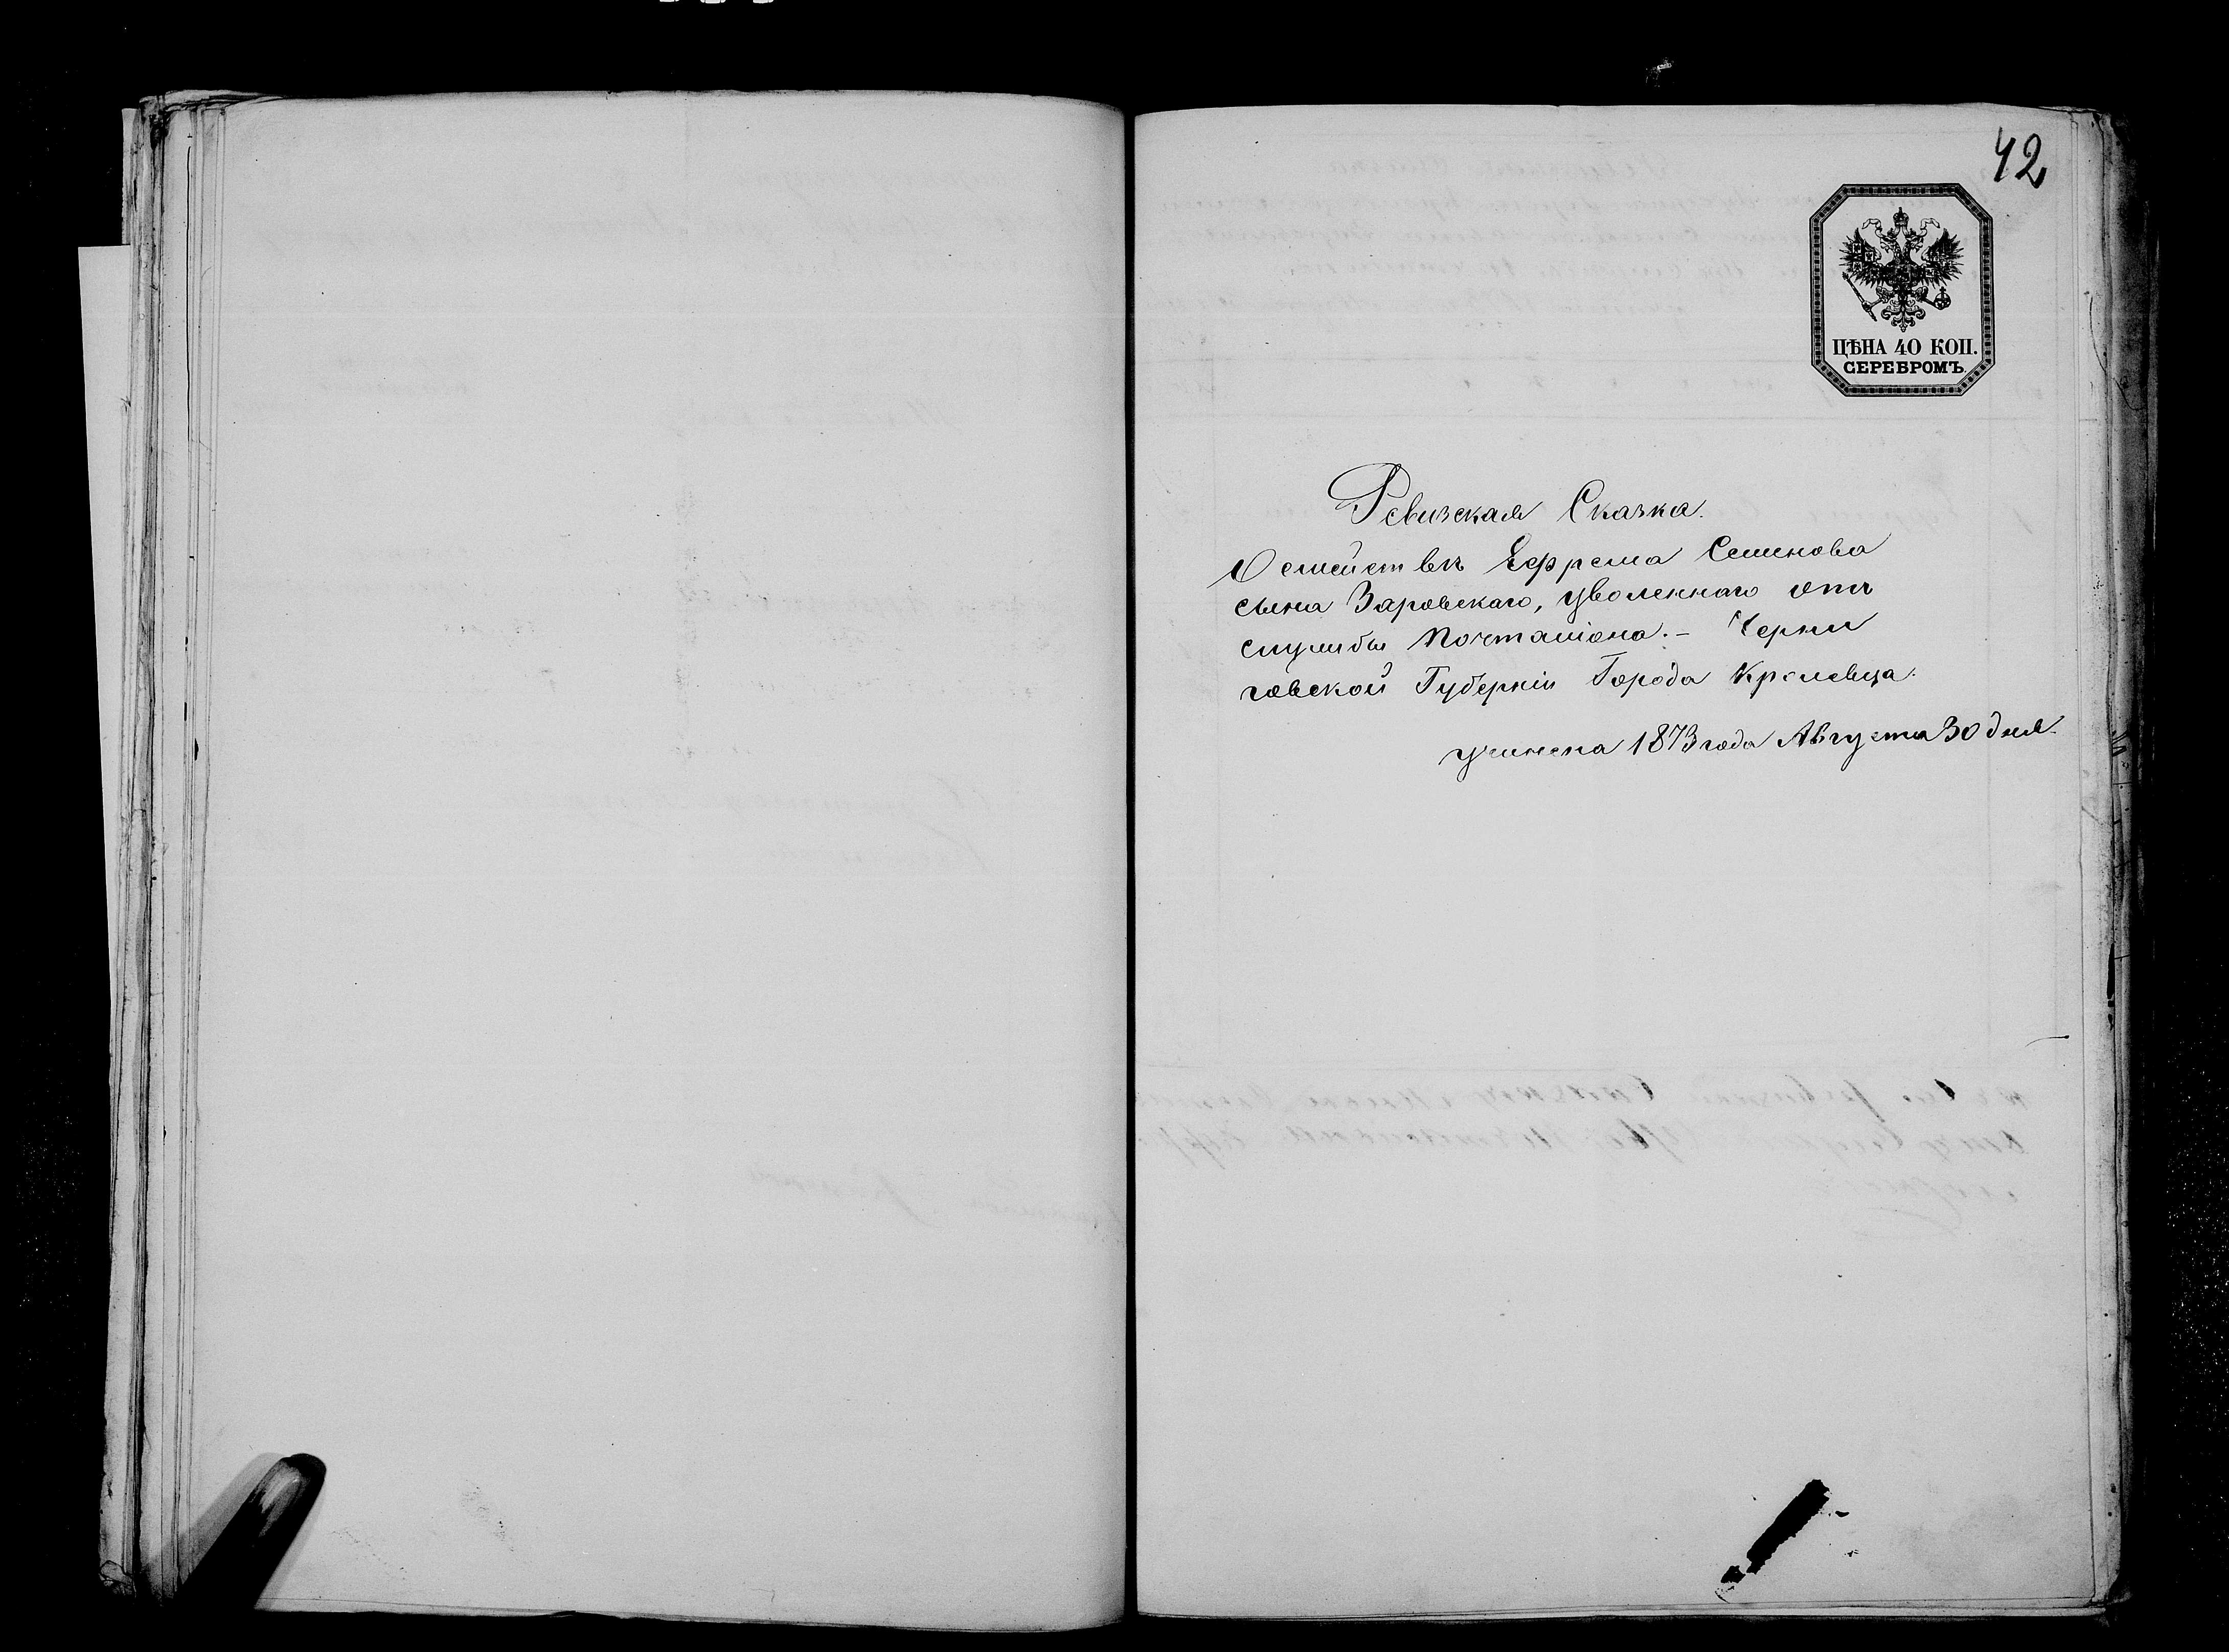 42
ЦѢНА 40 КОП.
СЕРЕБРОМЪ.
Ревизская Сказка.
О семействѣ Ефрема Семенова
сына Заровскаго, уволеннаго отъ
службы Почталіона. – Черни
говской Губерніи Города Кролевца.
учинена 1873 года Августа 30 дня.